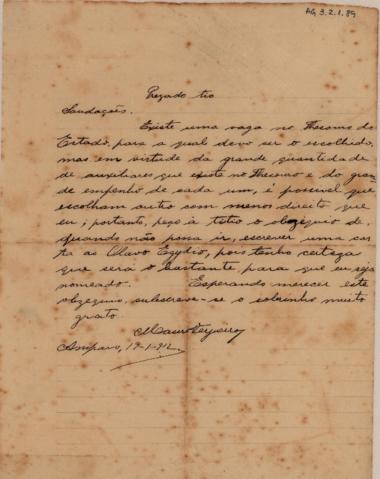 AG. 3.2.1.89
Prezado tio
Saudações.
Existe uma vaga no Thesouro do
Estado, para a qual devo ser o escolhido,
mas em virtude da grande quantidade
de auxiliares que existe no Thesouro e do gran
de empenho de cada um, é possivel que
escolham outro com menos direito que
eu; portanto, peço à titio o obzequio de,
quando não possa ir, escrever uma car
ta ao Olavo Egydio, pois tenho certeza
que será o bastante para que eu seja
nomeado. Esperando merecer este
obzequio, subscreve-se o sobrinho muito
grato
Amparo, 19-1-912